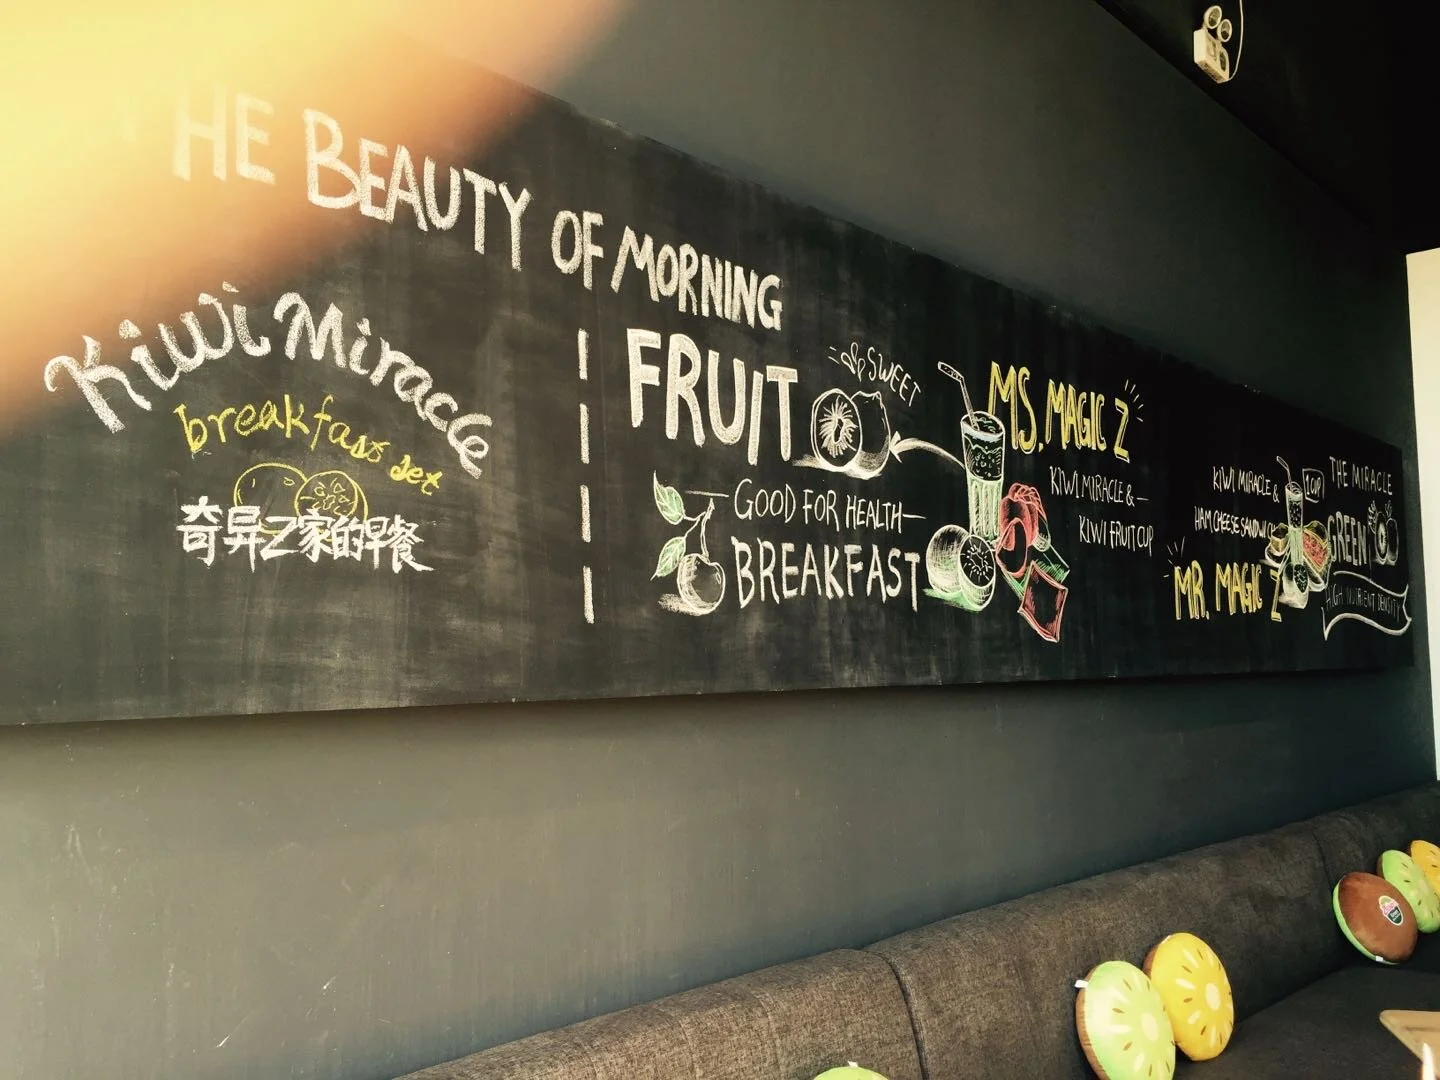 THE BEAUTY OF MORNING
Kiwi Miracle
breakfast set
奇异Z家的早餐
FRUIT
SWEET
GOOD FOR HEALTH—
BREAKFAST
MS. MAGIC Z
KIWI MIRACLE &—
KIWI FRUIT CUP
KIWI MIRACLE &
HAM CHEESE SANDWICH
MR. MAGIC Z
1 CUP
THE MIRACLE
GREEN
HIGH NUTRIENT DENSITY